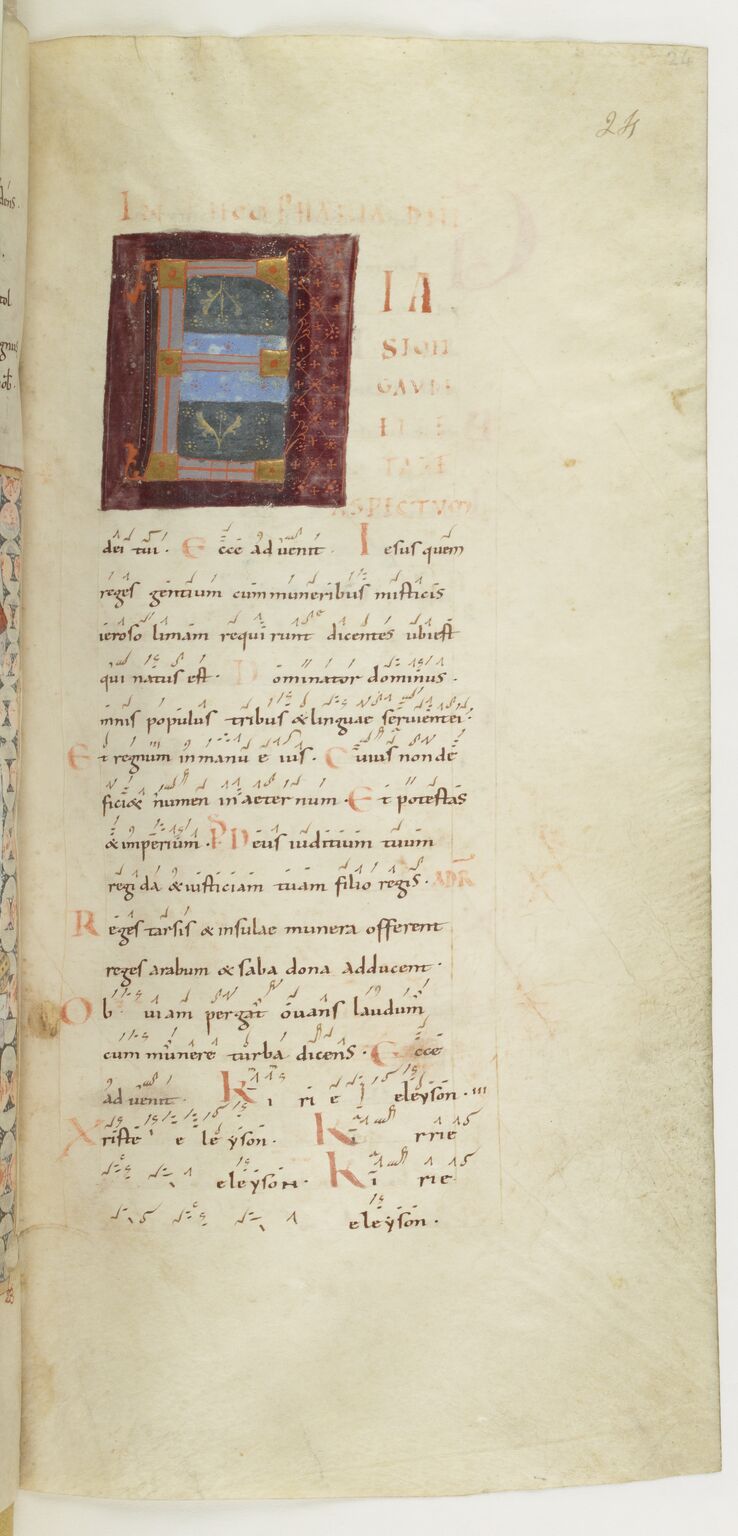 24
24
E IA
SION
GAVDE
ET LE
TARE
ASPECTVM
dei tui. Ecce aduenit. Iesus quem
reges gentium cum muneribus misticis
ierosolimam requirunt dicentes ubi est
qui natus est. Dominator dominus.
mnis populus tribus & linguae seruient ei.
Et regnum in manu eius. Cuius non de
fici& numen in aeternum. Et potestas
& imperium. Ps Deus iuditium tuum
regi da & iusticiam tuam filio regis. ADR
Reges tarsis & insulae munera offerent
reges arabum & saba dona adducent.
Obuiam pergat ouans laudum
cum munere turba dicens. Ecce
aduenit. Kirie eleyson. iii
Xpiste eleyson. Kirrie
eleyson. Kirie
eleyson.